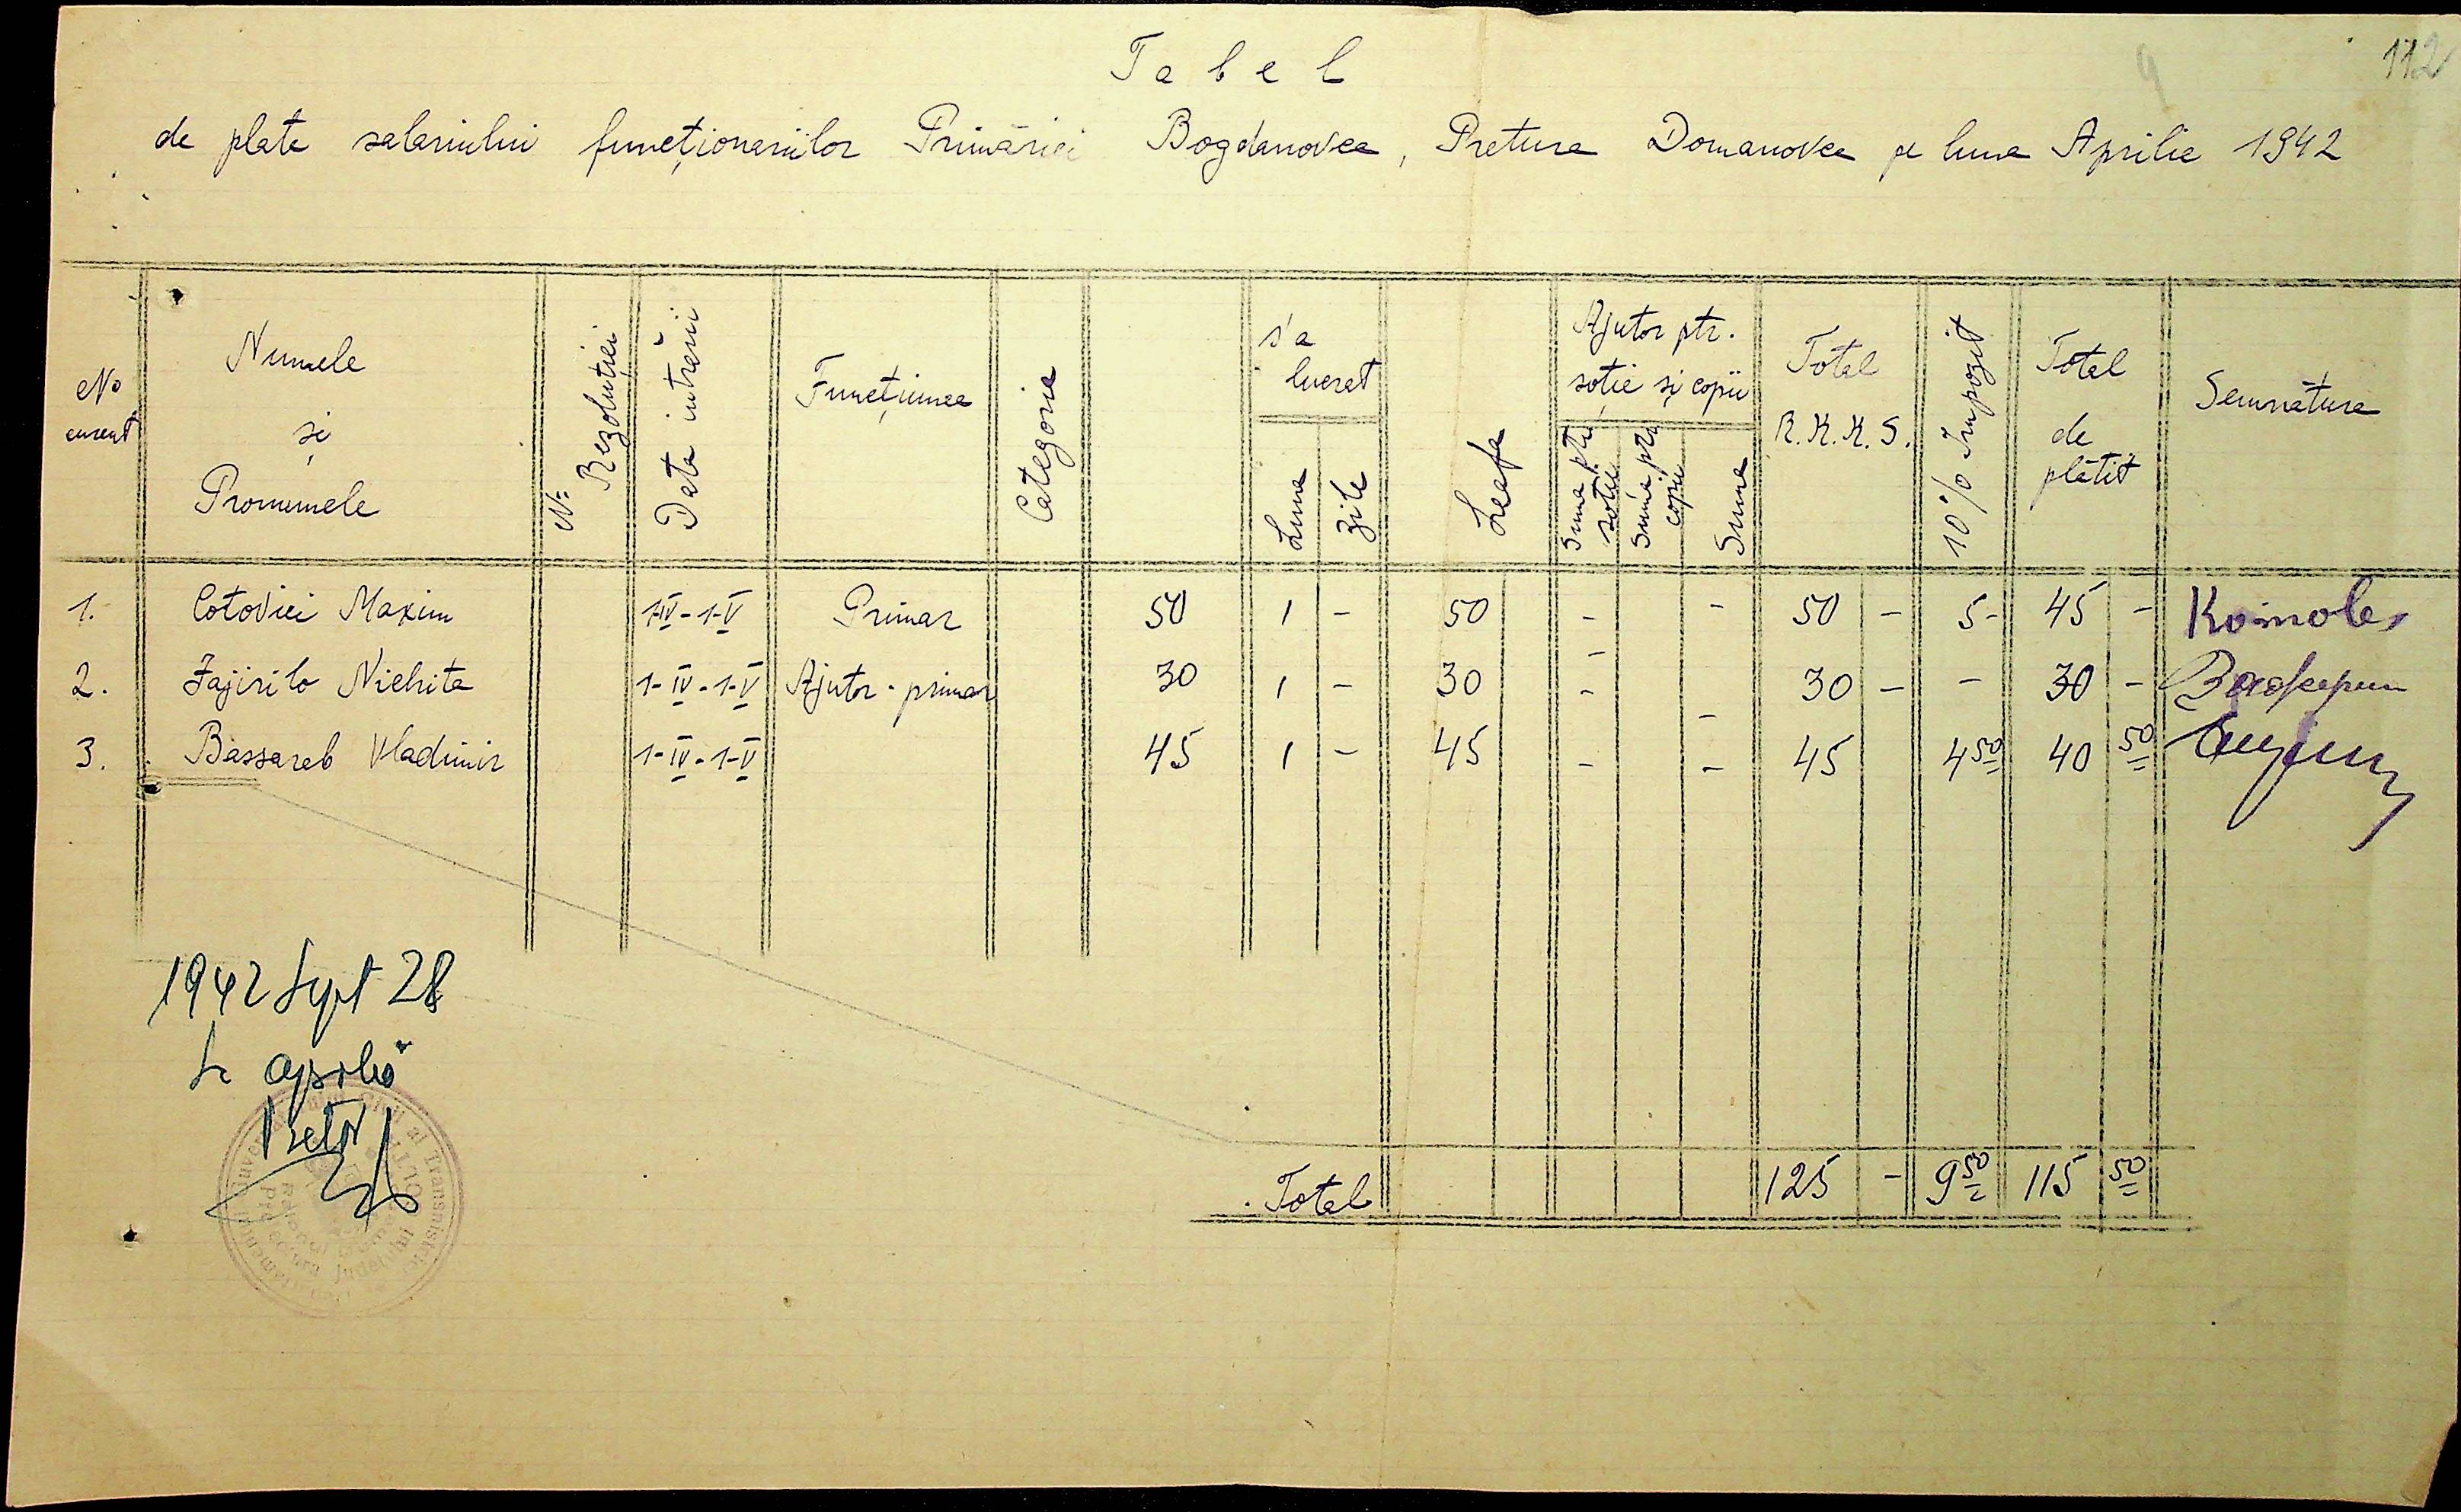 112
Tabel
de plata salariului funcționariilor Primăriei Bogdanovca, Pretura Domanovca pe luna Aprilie 1942
No curent
Numele și Pronumele
No Rezoluției
Data intrării
Funcțiunea
Categoria
s'a lucrat
Luna
zile
Leafa
Ajutor ptr. soție și copii
Suma ptr. soție
Suma ptr. copii
Suma
Total R.K.K.S.
10% Impozit
Total de plătit
Semnătura
1. Cotovici Maxim 1-IV-1-V Primar 50 1 - 50 - - 50 - 5- 45 -
2. Zajirilo Nichita 1-IV-1-V Ajutor-primar 30 1 - 30 - - 30 - - 30 -
3. Bassarab Vladimir 1-IV-1-V 45 1 - 45 - - 45 4 50 40 50
1942 Sept 28
Se aprobă
Pretor
Total 125 - 9 50 115 50